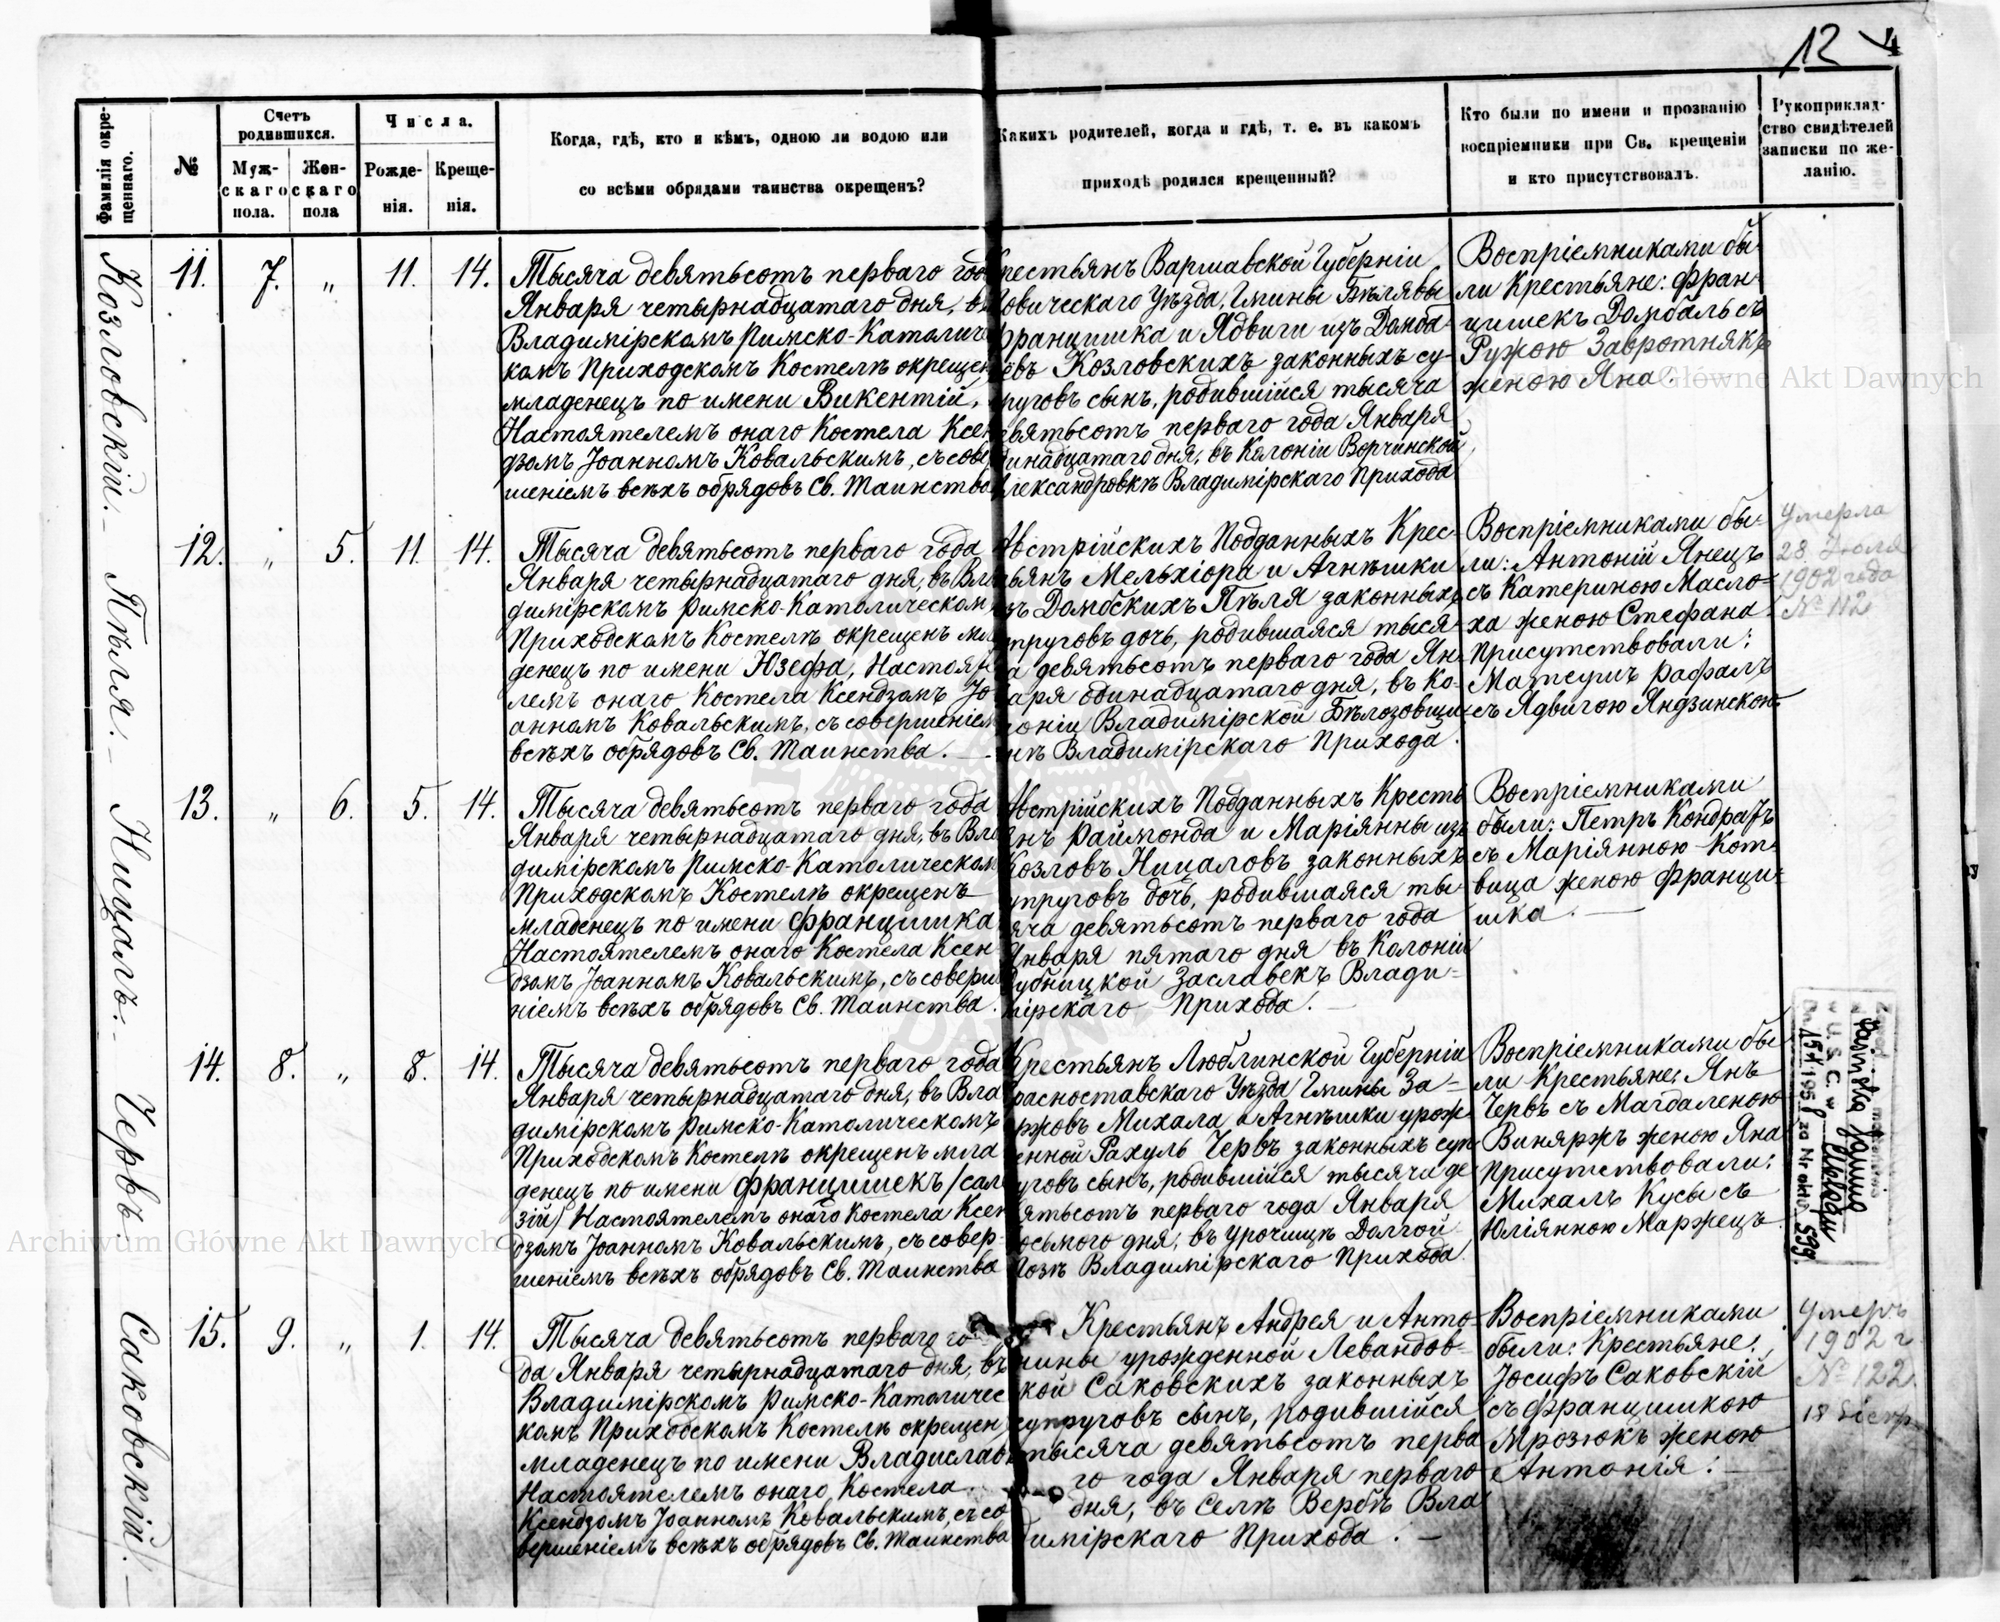 12
4
Фамилія окре-
щеннаго.
№
Счетъ
родившихся.
Муж-
скаго
пола.
Жен-
скаго
пола
Числа.
Рожде-
нія.
Креще-
нія.
Когда, гдѣ, кто и кѣмъ, одною ли водою или
со всѣми обрядами таинства окрещенъ?
Какихъ родителей, когда и гдѣ, т. е. въ какомъ
приходѣ родился крещенный?
Кто были по имени и прозванію
воспріемники при Св. крещеніи
и кто присутствовалъ.
Рукоприклад-
ство свидѣтелей
записки по же-
ланію.
Козловскій.
11. 7. „ 11. 14.
Тысяча девятьсотъ перваго год
Января четырнадцатаго дня, въ
Владимірскомъ Римско-Католиче
комъ Приходскомъ Костелѣ окрещен
младенецъ по имени Викентій,
Настоятелемъ онаго Костела Ксен
дзомъ Іоанномъ Ковальскимъ, съ сове
шеніемъ всѣхъ обрядовъ Св. Таинства
рестьянъ Варшавской Губерніи
Ловическаго Уѣзда, Гмины Бѣлявы
Францишка и Ядвиги изъ Домба-
евъ Козловскихъ законныхъ су-
руговъ сынъ, родившійся тысяча
евятьсотъ перваго года Января
динадцатаго дня, въ Колоніи Верчинской
Александровкѣ Владимірскаго Прихода
Воспріемниками бы-
ли Крестьяне: Фран-
цишекъ Домбаль съ
Ружою Завротнякъ
женою Яна.
Пѣля.
12. „ 5. 11. 14.
Тысяча девятьсотъ перваго года
Января четырнадцатаго дня, въ Вла
димірскомъ Римско-Католическом
Приходскомъ Костелѣ окрещенъ мла
денецъ по имени Юзефа, Настоят
лемъ онаго Костела Ксендзомъ Іо
анномъ Ковальскимъ, съ совершеніем
всѣхъ обрядовъ Св. Таинства.
Австрійскихъ Подданныхъ Крес-
ьянъ Мельхіора и Агнѣшки
зъ Домбскихъ Пѣля законныхъ
упруговъ дочь, родившаяся тыся-
ча девятьсотъ перваго года Ян-
варя одинадцатаго дня, въ Ко-
лоніи Владимірской Бѣлозовщи-
нѣ Владимірскаго Прихода.
Воспріемниками бы-
ли: Антоній Янецъ
съ Катериною Масло-
ха женою Стефана.
Присутствовали:
Матеушъ Рафалъ
съ Ядвигою Яндзинскою
Умерла
28 Іюля
1902 года
№ 112
Ницалъ.
13. „ 6. 5. 14.
Тысяча девятьсотъ перваго года
Января четырнадцатаго дня, въ Вла
димірскомъ Римско-Католическом
Приходскомъ Костелѣ окрещенъ
младенецъ по имени Францишка
Настоятелемъ онаго Костела Ксен-
дзомъ Іоанномъ Ковальскимъ, съ соверш
ніемъ всѣхъ обрядовъ Св. Таинства.
Австрійскихъ Подданныхъ Кресть
янъ Раймонда и Маріянны изъ
Козловъ Ницаловъ законныхъ
упруговъ дочь, родившаяся ты-
яча девятьсотъ перваго года
Января пятаго дня въ Колоніи
Рубницкой Заславекъ Влади-
мірскаго Прихода.
Воспріемниками
были: Петръ Кондратъ
съ Маріянною Кот-
вица женою Франци-
шка.
Червъ
14. 8. „ 8. 14.
Тысяча девятьсотъ перваго года
Января четырнадцатаго дня, въ Вла
димірскомъ Римско-Католическомъ
Приходскомъ Костелѣ окрещенъ мла
денецъ по имени Францишекъ /сал
зій/ Настоятелемъ онаго Костела Ксен
дзомъ Іоанномъ Ковальскимъ, съ совер-
шеніемъ всѣхъ обрядовъ Св. Таинства
Крестьянъ Люблинской Губерніи
Красноставскаго Уѣзда Гмины За-
ржовъ Михала и Агнѣшки урож-
енной Рахуль Червъ законныхъ суп-
уговъ сынъ, родившійся тысяча де
вятьсотъ перваго года Января
осьмого дня, въ урочищѣ Долгой
Лозѣ Владимірскаго Прихода
Воспріемниками бы-
ли Крестьяне: Янъ
Червъ съ Магдаленою
Виняржъ женою Яна
Присутствовали:
Михалъ Кусы съ
Юліянною Маржецъ
w U. S. C. w
za Nr aktu 599.
Саковскій.
15. 9. „ 1. 14.
Тысяча девятьсотъ перваго го-
да Января четырнадцатаго дня, въ
Владимірскомъ Римско-Католичес
комъ Приходскомъ Костелѣ окрещен
младенецъ по имени Владислав
Настоятелемъ онаго Костела
Ксендзомъ Іоанномъ Ковальскимъ, съ со
вершеніемъ всѣхъ обрядовъ Св. Таинства
Крестьянъ Андрея и Анто-
нины урожденной Левандов-
кой Саковскихъ законныхъ
супруговъ сынъ, родившійся
тысяча девятьсотъ перва
го года Января перваго
дня, въ Селѣ Вербѣ Вла
димірскаго Прихода.
Воспріемниками
были: Крестьяне:
Іосифъ Саковскій
съ Францишкою
Мрозюкъ женою
Антонія.
Умеръ
1902 г
№ 122
Archiwum Główne Akt Dawnych
Archiwum Główne Akt Dawnych